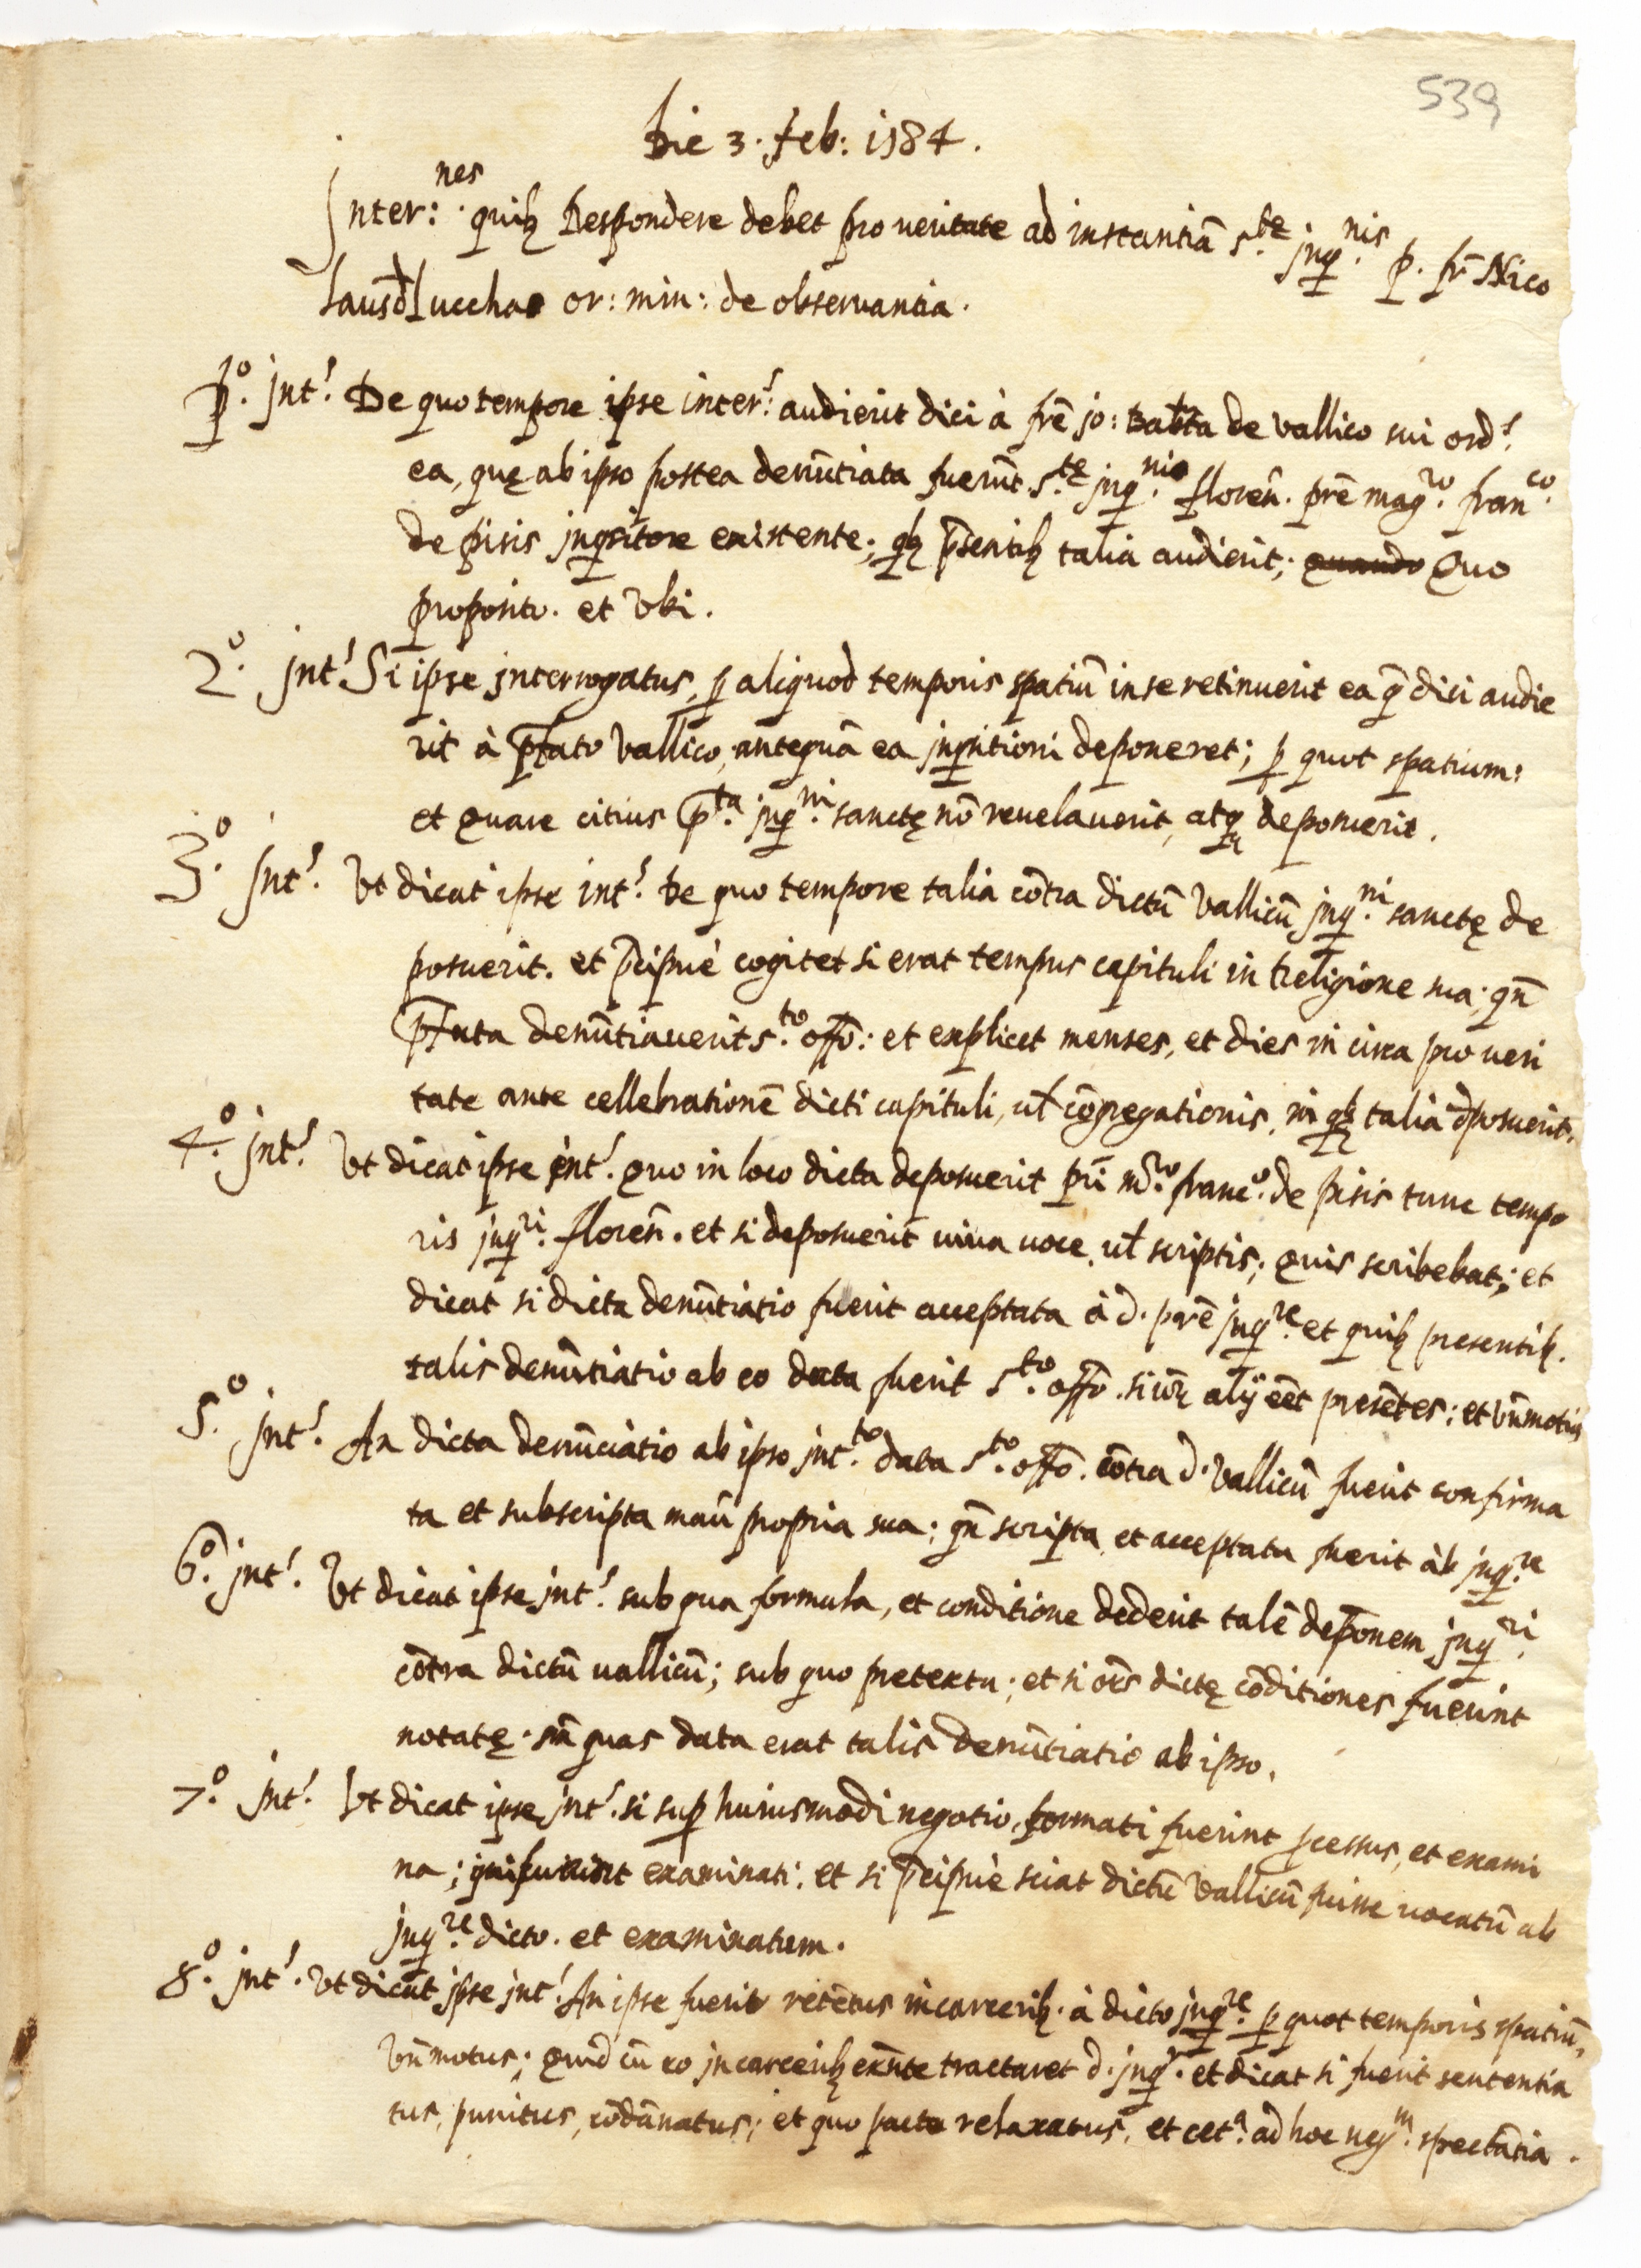 539
Die 3. feb: 1584.
Inter:nes quibȝ Respondere debet pro veritate ad instantiā s.tę jnq.nis p. fr̄ Nico
laus đ lucchae or: min: de observantia.
1o. jnt.s De quo tempore ipse inter:s audierit dici à frē jo: batta de vallico sui ord.s
ea, quę ab ipso postea denūtiata fuerūt s.tę jnq.nis florēn. prē mag.ro fran.co
de pisis jnqsitore existente; qbȝ p̄sentibȝ talia audierit; quando Quo
proposito. et Vbi.
2o. jnt.s Si ipse jnterrogatus, ꝑ aliquod temporis spatiū in se retinuerit ea q̄ dici audie
rit à p̄fato Vallico, antequā ea jnqsitioni deponeret; ꝑ quot spatium:
et Quare citius p̄.ta jnq.ni sanctę nō revelauerit, atqȝ deposuerit.
3o. jnt.s Vt dicat ipse int.s De quo tempore talia cōtra dictū Vallicū jnq.ni sanctę de
posuerit. et p̄cipuè cogitet si erat tempus capituli in religione sua; qn̄
p̄fata denūtiauerit s.to offō: et explicet menses, et dies in circa pro veri
tate ante cellebrationē dicti capituli, ul̄ cōgregationis, in qbȝ talia đposuerit.
4o. jnt.s Vt dicat ipse jnt.s Quo in loco dicta deposuerit prī m.ro franc.o de pisis tunc tempo
ris jnq.ri florēn. et si deposuerit uiua uoce, ul̄ scriptis; Quis scribebat; et
dicat si dicta denūtiatio fuerit acceptata à d. prē jnq.re et quibȝ presentibȝ.
talis denūtiatio ab eo data fuerit s.to offō. alij eēt presētes; et Vn̄ motus
5o. jnt.s An dicta denūciatio ab ipso jnt.to data s.to offō. cōtra d. Vallicū fuerit confirma
ta et subscripta manū propria sua; qn̄ scripta, et acceptata fuerit àb jnq.re
6o. jnt.s Vt dicat ipse jnt.s sub qua formula, et conditione dederit talē depōnem jnq.ri
cōtra dictū uallicū; sub quo pretextu; et si oēs dictę cōditiones fuerint
notatę. sm̄ quas data erat talis denūtiatio ab ipso.
7o. jnt.s Vt dicat ipse jnt.s si suꝑ huiusmodi negotio, formati fuerint ꝓcessus, et exami
na; qui fuerint examinati: et si p̄cipuè sciat dictū Vallicū fuisse uocatū ab
jnq.re dicto. et examinatum.
8o. jnt.s Vt dicat jpse jnt.s An ipse fuerit retētus in carceribȝ. à dicto jnq.re ꝑ quot temporis spatiū,
Vn̄ motus; Quid cū eo jn carceribȝ exn̄te tractaret d. jnq.r et dicat si fuerit sententia
tus, punitus, cōdānatus; et quo pacto relaxatus, et cet.a ad hoc neg.m spectātia.